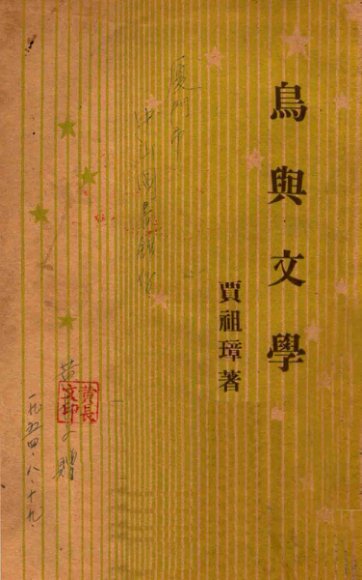 鳥與文學
賈祖璋著
廈門市
中山圖書館
黃長
文印
贈
一九五四·八·十九·